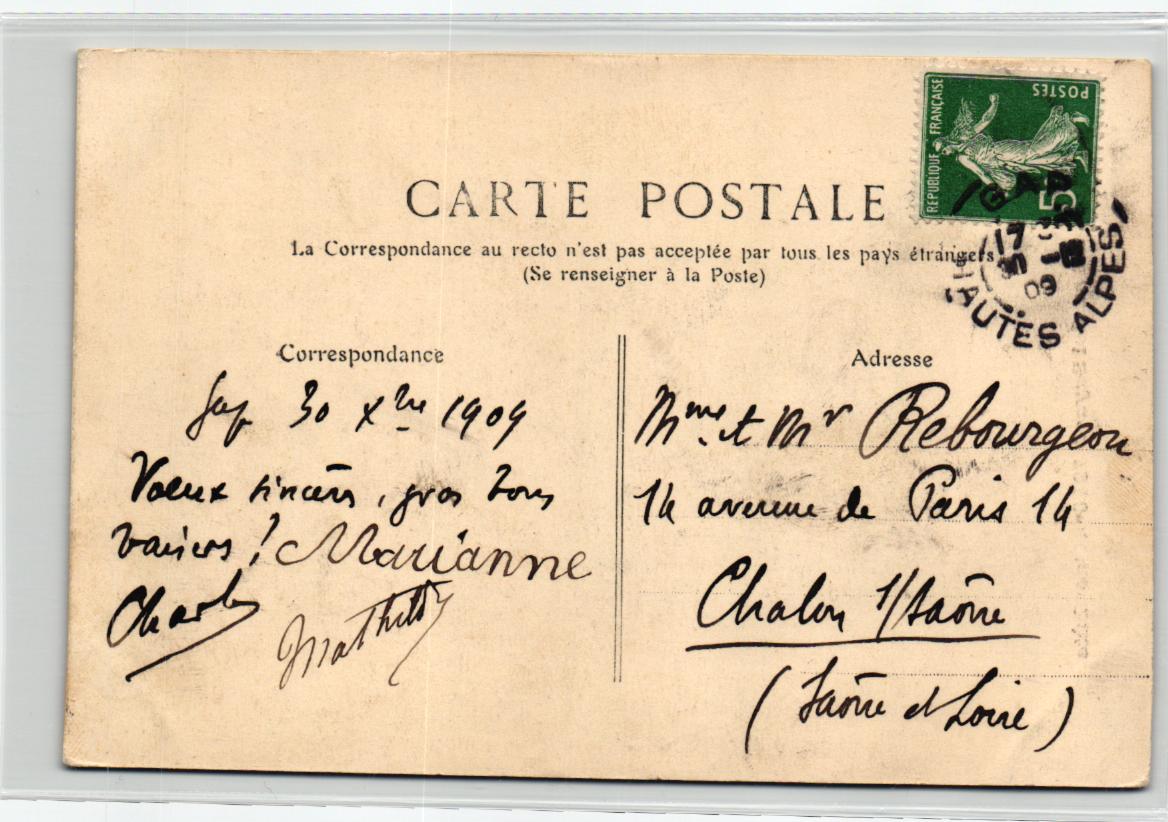 RÉPUBLIQUE FRANÇAISE
POSTES
5
GAP
17
09
HAUTES ALPES
CARTE POSTALE
La Correspondance au recto n'est pas acceptée par tous les pays étrangers
(Se renseigner à la Poste)
Correspondance
Gap 30 Xbre 1909
Voeux sincères, gros bons
baisers ! Marianne
Charles Mathilde
Adresse
Mme et Mr Rebourgeon
14 avenue de Paris 14
Chalon s/Saône
(Saône et Loire)